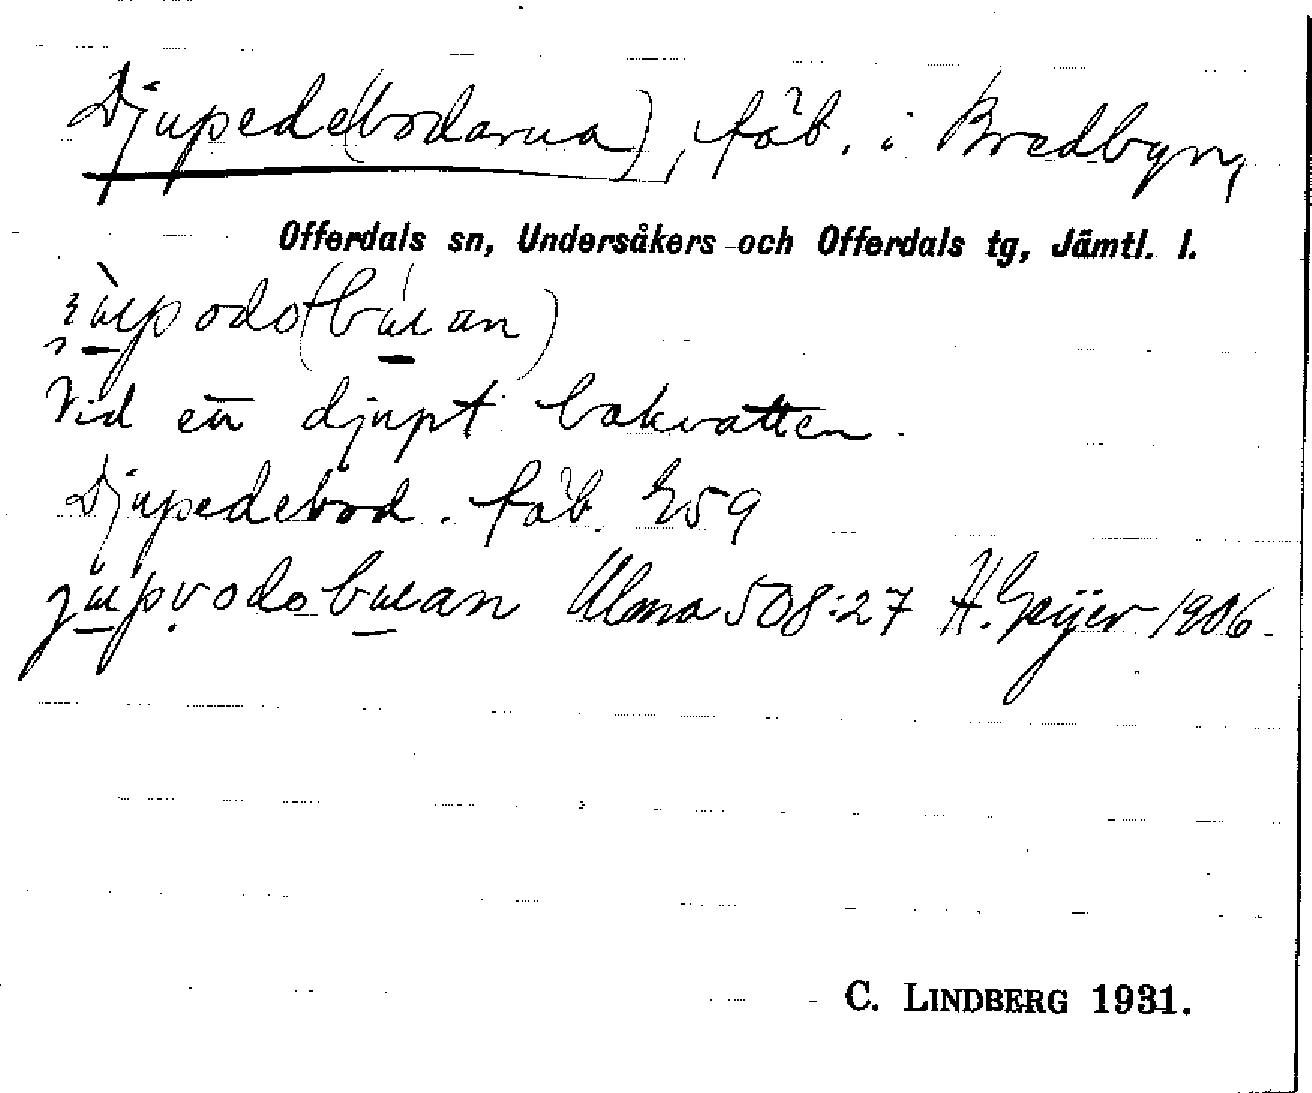 Djupede(bodarna), fäb. i Bredbyn,
Offerdals sn, Undersåkers och Offerdals tg, Jämtl. l.
Vid ett djupt bakvatten.
Djupedebod. fäb. E59
Ulma 508:27 H. Geijer 1906.
C. LINDBERG 1931.